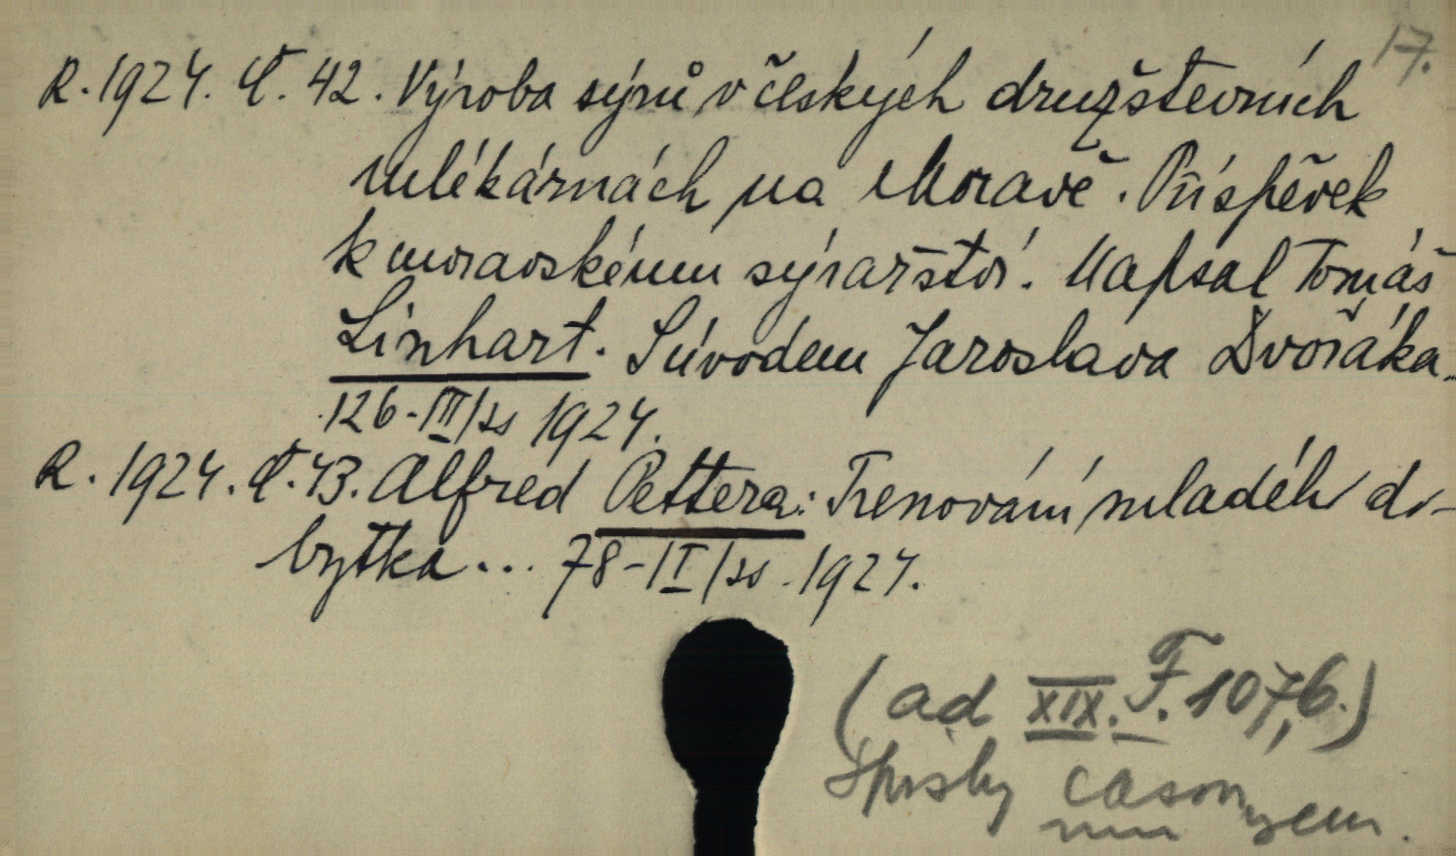 17.
R. 1924. Č. 42. Výroba sýrů v českých družstevních
mlékárnách na Moravě. Příspěvek
k moravskému sýrařství. Napsal Tomáš
Linhart. S úvodem Jaroslava Dvořáka.
126-III/ss 1924.
R. 1924. Č. 43. Alfred Pettera: Trenování mladého do-
bytka... 78-II/ss. 1924.
(ad XIX. F. 107,6.)
Spisky